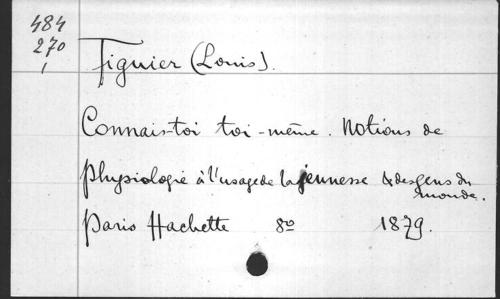 484
270
1
Figuier (Louis).
Connais-toi toi-même. Notions de
physiologie à l'usage de la jeunesse & des gens du
monde.
Paris Hachette 8º 1879.